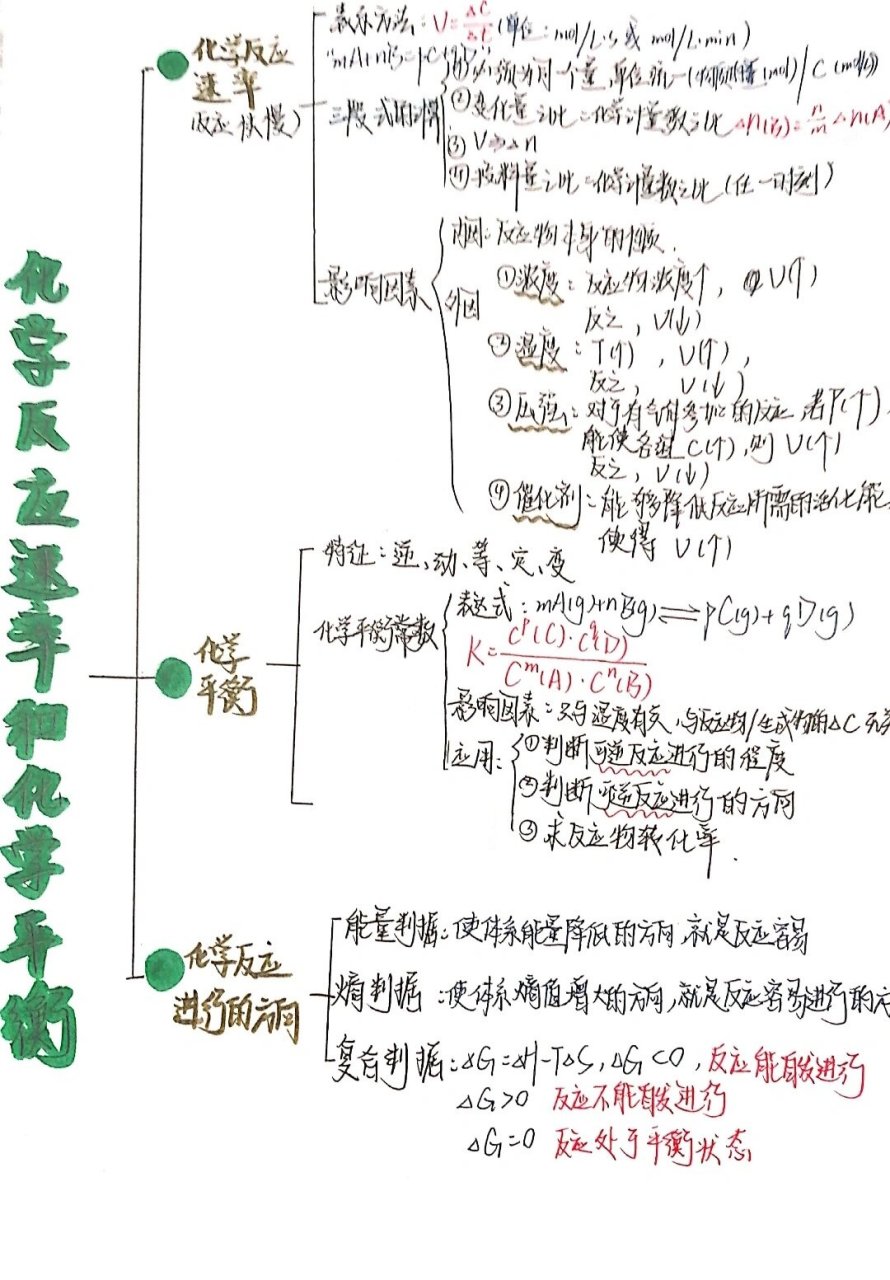 化学反应速率和化学平衡
化学反应
速率
(反应快慢)
表示方法: V=ΔC/Δt (单位: mol/L·s 或 mol/L·min)
"mA+nB=pC
三段式的计算
必须为同一个量,单位统一(物质的量 mol)/C
②变化量之比=化学计量数之比 Δn(B)=n/m Δn(A
③V Δn
④ 之比=化学计量数之比(任一时刻)
影响因素
内因:反应物本身的性质.
外因
①浓度: 反应物浓度↑, V(↑)
反之, V(↓)
②温度: T(↑), V(↑),
反之, V(↓)
③压强: 对于有气体参加的反应,若P(↑)
能使各组 C(↑),则 V(↑)
反之, V(↓)
④催化剂: 能够降低反应所需的活化能,
使得 V(↑)
化学
平衡
特征: 逆、动、等、定、变
化学平衡常数
表达式: mA(g)+nB(g)⇌pC(g)+qD(g)
K=C^p(C)·C^q(D)/C^m(A)·C^n(B)
影响因素: 只与温度有关,与反应物/生成物的ΔC无关
应用:
①判断可逆反应进行的程度
②判断可逆反应进行的方向
③求反应物转化率.
化学反应
进行的方向
能量判据: 使体系能量降低的方向,就是反应容易
熵判据: 使体系熵值增大的方向,就是反应容易进行的方
复合判据: ΔG=ΔH-TΔS, ΔG<0, 反应能自发进行
ΔG>0 反应不能自发进行
ΔG=0 反应处于平衡状态